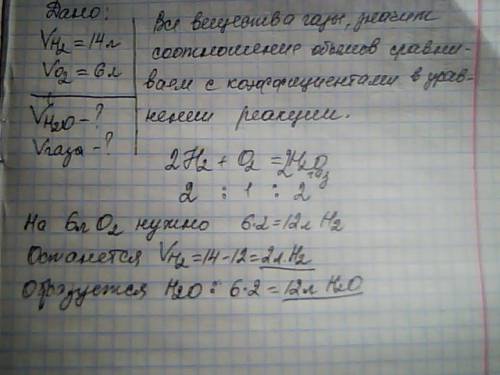 Дано:
V H₂ = 14 л
V O₂ = 6 л
V H₂O - ?
V газа - ?
Все вещества газы, значит
соотношение объемов сравни-
ваем с коэффициентами в урав-
нении реакции.
2H₂ + O₂ = 2H₂O
газ
2 : 1 : 2
На 6л O₂ нужно 6·2=12л H₂
Останется V H₂=14-12=2л H₂
Образуется H₂O: 6·2=12л H₂O